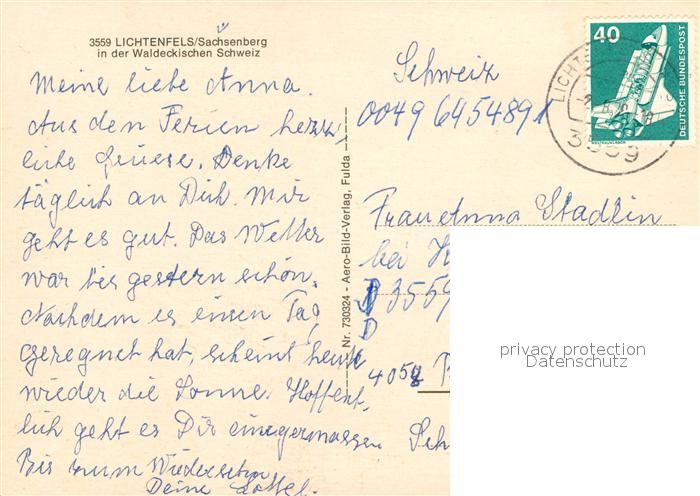 3559 LICHTENFELS/Sachsenberg
in der Waldeckischen Schweiz
Meine liebe Anna.
Aus den Ferien herz-
liche Grüsse. Denke
täglich an Dich. Mir
geht es gut. Das Wetter
war bis gestern schön.
Nachdem es einen Tag
geregnet hat, scheint heute
wieder die Sonne. Hoffent-
lich geht es Dir einigermassen
Bis zum Wiedersehen
Deine
Nr. 730324 - Aero-Bild-Verlag, Fulda
40
DEUTSCHE BUNDESPOST
WELTRAUMLABOR
LICHT
3559
Schweiz
0049 6454891
Frau Anna Stadlin
bei
D 3559
4058
Sch
privacy protection
Datenschutz